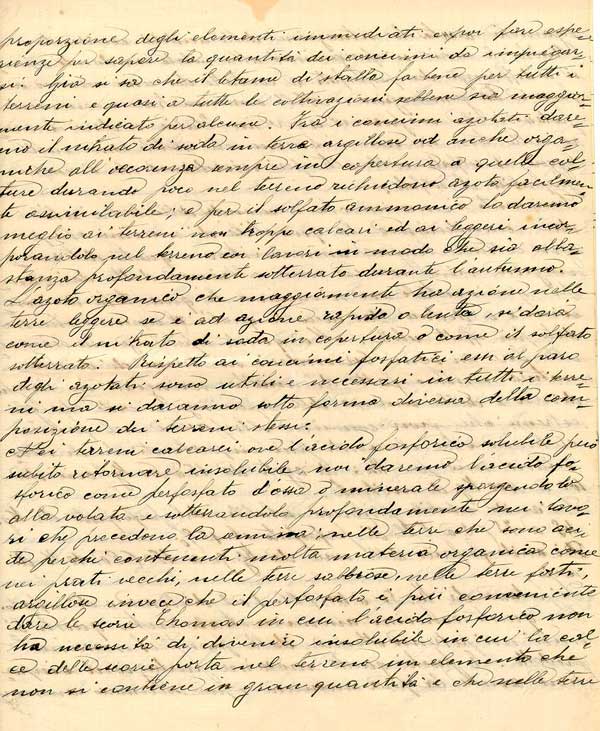 proporzione degli elementi immediati e poi fare espe-
rienze per sapere la quantità dei concimi da impiegar-
si. Già si sa che il letame di stalla fa bene per tutti i
terreni e quasi a tutte le coltivazioni sebbene sia maggior-
mente indicato per alcune. Fra i concimi azotati dare-
mo il nitrato di soda in terre argillose od anche orga-
niche all'occorenza sempre in copertura a quelle col-
ture durando poco nel terreno richiedono azoto facilmen-
te assimilabile; e per il solfato ammonico lo daremo
meglio ai terreni non troppo calcari ed ai leggeri incor-
porandolo nel terreno coi lavori in modo che sia abba-
stanza profondamente sotterrato durante l'autunno.
L'azoto organico che maggiormente ha azione nelle
terre leggere se è ad azione rapida o lenta, si darà
come il nitrato di soda in copertura o come il solfato
sotterrato. Rispetto ai concimi fosfatici essi al paro
degli azotati sono utili e necessari in tutti i terre-
ni ma si daranno sotto forma diversa della com-
posizione dei terreni stessi.
Nei terreni calcarei ove l'acido fosforico solubile può
subito ritornare insolubile, noi daremo l'acido fo-
sforico come perfosfato d'ossa o minerale spargendolo
alla volata e sotterrandolo profondamente nei lavo-
ri che precedono la semina; nelle terre che sono aci-
de perchè contenenti molta materia organica come
nei prati vecchi, nelle terre sabbiose, nelle terre forti,
argillose invece che il perfosfato è più conveniente
dare le scorie Thomas in cui l'acido fosforico non
ha necessità di divenire insolubile in cui la cal-
ce delle scorie porta nel terreno un elemento che
non si contiene in gran quantità e che nelle terre